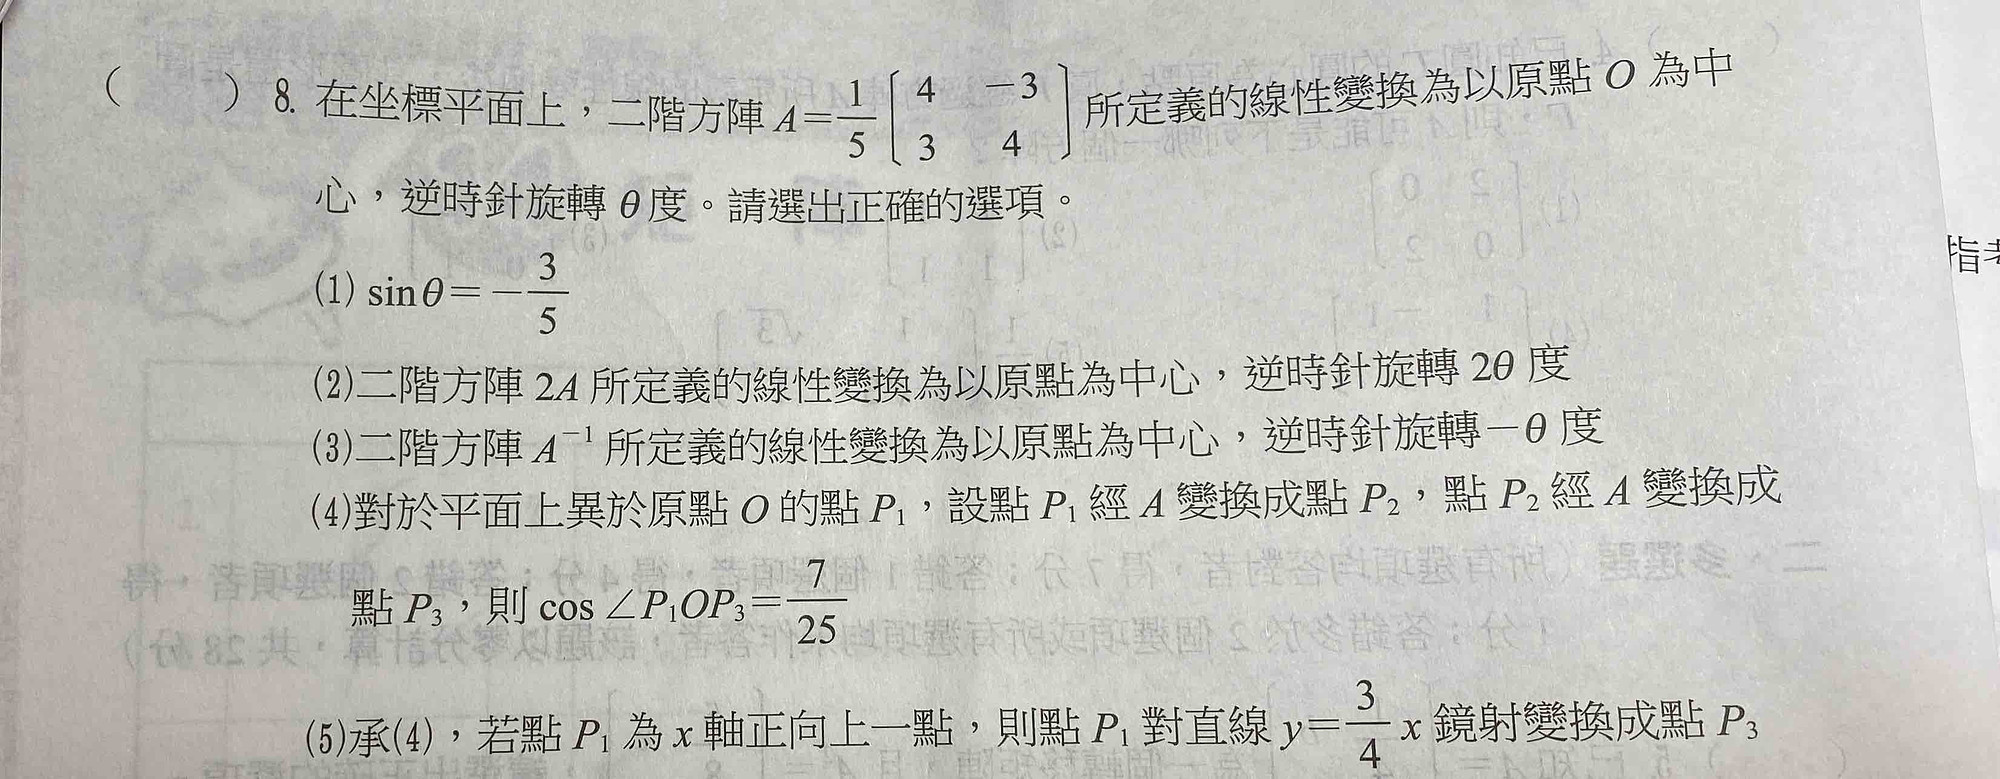 ( ) 8. 在坐標平面上，二階方陣 A＝1/5 [4 －3; 3 4] 所定義的線性變換為以原點 O 為中
心，逆時針旋轉 θ 度。請選出正確的選項。
(1) sinθ＝－3/5
(2)二階方陣 2A 所定義的線性變換為以原點為中心，逆時針旋轉 2θ 度
(3)二階方陣 A⁻¹ 所定義的線性變換為以原點為中心，逆時針旋轉－θ 度
(4)對於平面上異於原點 O 的點 P₁，設點 P₁ 經 A 變換成點 P₂，點 P₂ 經 A 變換成
點 P₃，則 cos ∠P₁OP₃＝7/25
(5)承(4)，若點 P₁ 為 x 軸正向上一點，則點 P₁ 對直線 y＝3/4 x 鏡射變換成點 P₃
指考